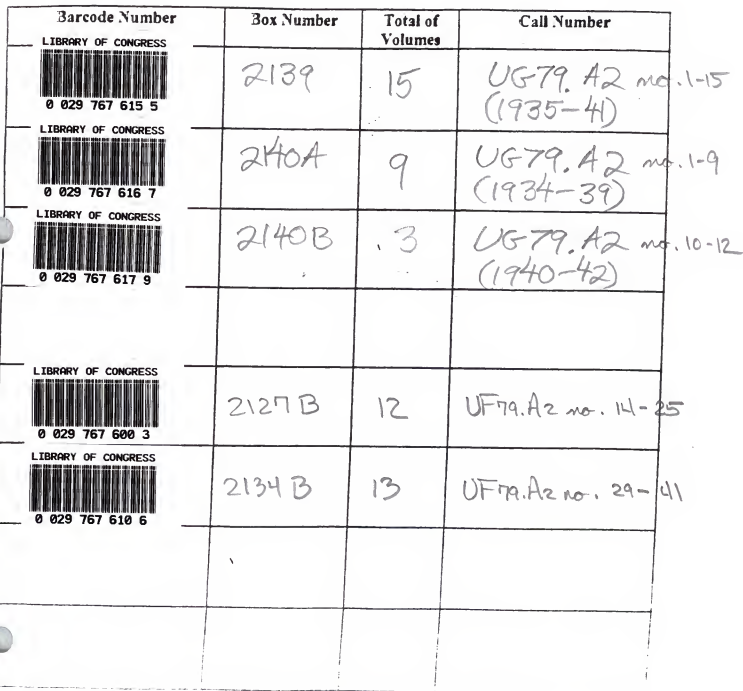 Barcode Number Box Number Total of Volumes Call Number
LIBRARY OF CONGRESS
0 029 767 615 5
2139 15 UG79.A2 no.1-15
(1935-41)
LIBRARY OF CONGRESS
0 029 767 616 7
2140A 9 UG79.A2 no.1-9
(1934-39)
LIBRARY OF CONGRESS
0 029 767 617 9
2140B 3 UG79.A2 no.10-12
(1940-42)
LIBRARY OF CONGRESS
0 029 767 600 3
2127B 12 UF79.A2 no. 14-25
LIBRARY OF CONGRESS
0 029 767 610 6
2134B 13 UF79.A2 no. 29-41